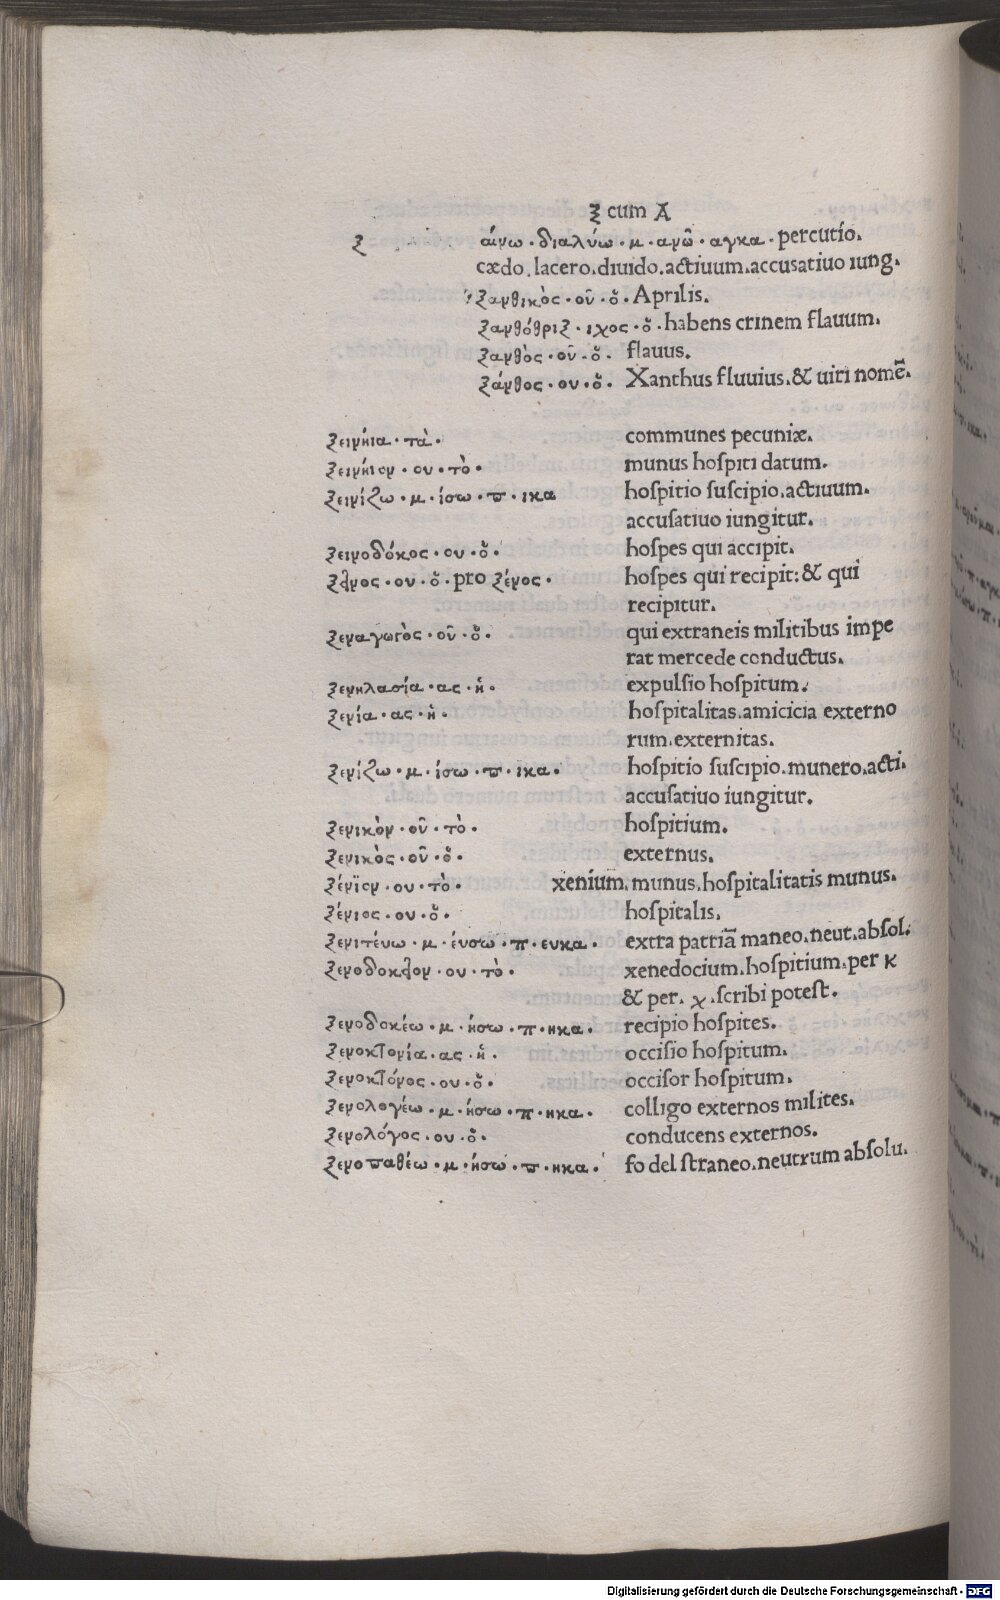 ξ cum A
ξ αίνω · διαλύω · μ · ανῶ · αγκα · percutio.
cædo.lacero.diuido.actiuum.accusatiuo iung.
ξανθικὸς · οῦ · ὁ · Aprilis.
ξανθόθριξ · ιχος · ὁ · habens crinem flauum.
ξανθὸς · οῦ · ὁ · flauus.
ξάνθος · ου · ὁ · Xanthus fluuius.& uiri nomē.
ξεινήια · τὰ · communes pecuniæ.
ξεινήιον · ου · τὸ · munus hoſpiti datum.
ξεινίζω · μ · ίσω · π · ικα hoſpitio ſuſcipio.actiuum.
accuſatiuo iungitur.
ξεινοδόκος · ου · ὁ · hoſpes qui accipit.
ξεῖνος · ου · ὁ · pro ξένος · hoſpes qui recipit: & qui
recipitur.
ξεναγωγὸς · οῦ · ὁ · qui extraneis militibus impe
rat mercede conductus.
ξενηλασία · ας · ἡ · expulſio hoſpitum.
ξενία · ας · ἡ · hoſpitalitas.amicicia externo
rum.externitas.
ξενίζω · μ · ίσω · π · ικα · hoſpitio ſuſcipio.munero.acti.
accuſatiuo iungitur.
ξενικὸν · οῦ · τὸ · hoſpitium.
ξενικὸς · οῦ · ὁ · externus.
ξένιον · ου · τὸ · xenium.munus.hoſpitalitatis munus.
ξένιος · ου · ὁ · hoſpitalis.
ξενιτέυω · μ · έυσω · π · ευκα · extra patriā maneo.neut.abſol.
ξενοδοκεῖον · ου · τὸ · xenedocium.hoſpitium.per κ
& per. χ .ſcribi poteſt.
ξενοδοκέω · μ · ήσω · π · ηκα · recipio hoſpites.
ξενοκτονία · ας · ἡ · occiſio hoſpitum.
ξενοκτόνος · ου · ὁ · occiſor hoſpitum.
ξενολογέω · μ · ήσω · π · ηκα · colligo externos milites.
ξενολόγος · ου · ὁ · conducens externos.
ξενοπαθέω · μ · ήσω · π · ηκα · fo del ſtraneo.neutrum abſolu.
Digitalisierung gefördert durch die Deutsche Forschungsgemeinschaft - DFG